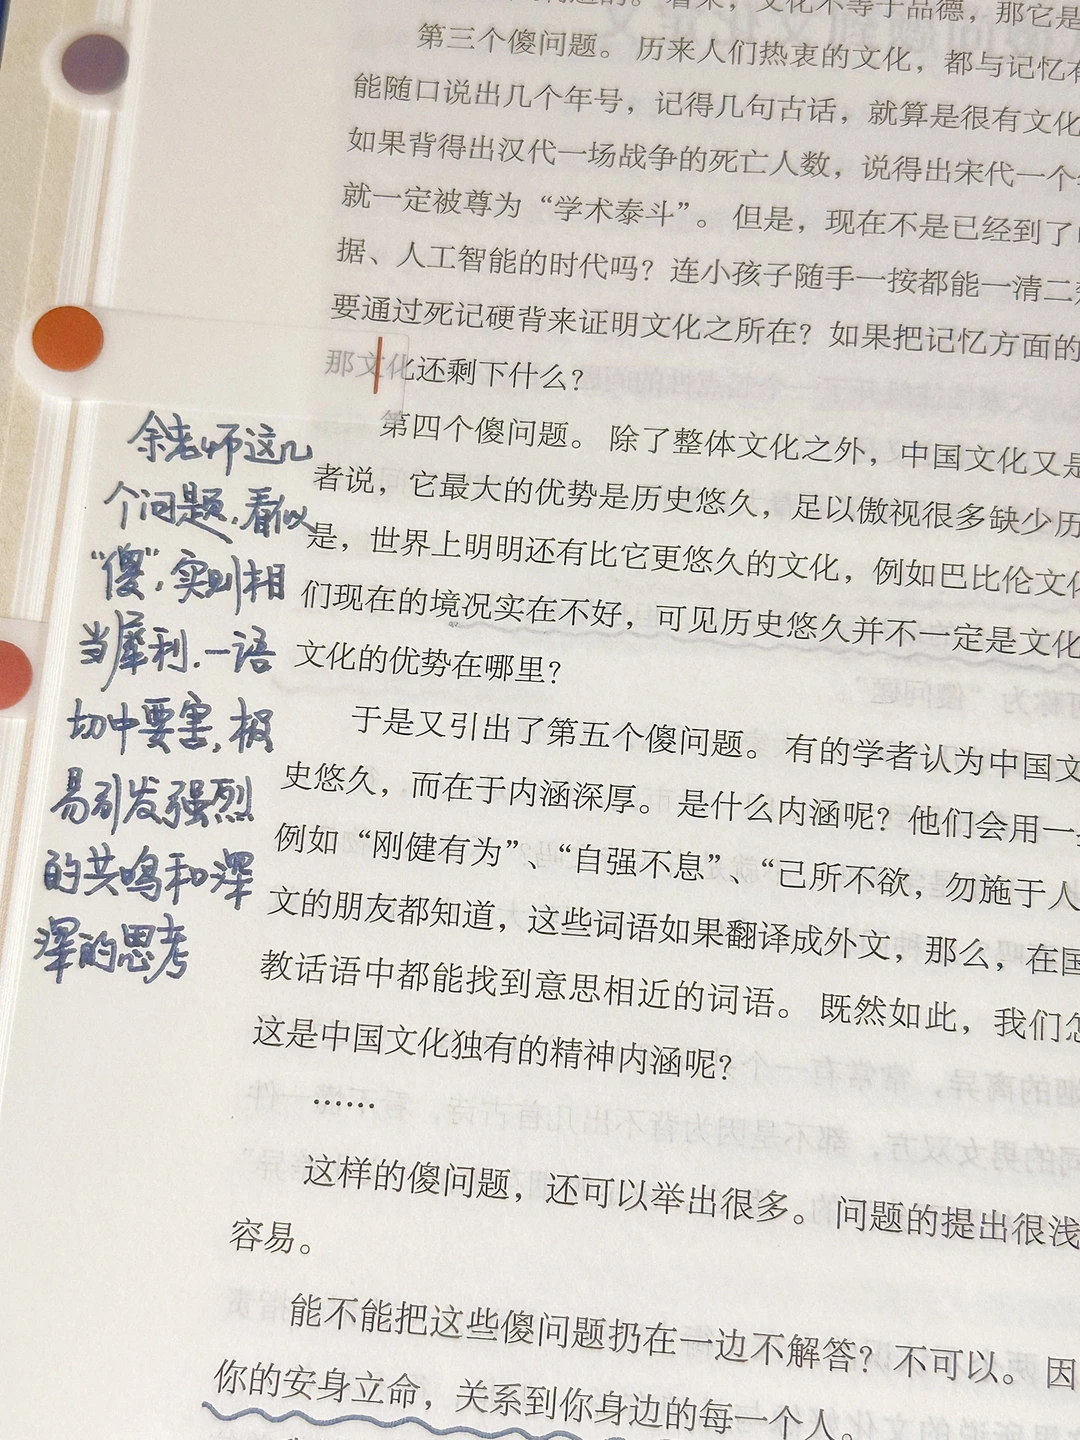 问题的。看来，文化不等于品德，那它是
第三个傻问题。历来人们热衷的文化，都与记忆有
能随口说出几个年号，记得几句古话，就算是很有文化
如果背得出汉代一场战争的死亡人数，说得出宋代一个
就一定被尊为“学术泰斗”。但是，现在不是已经到了
据、人工智能的时代吗？连小孩子随手一按都能一清二
要通过死记硬背来证明文化之所在？如果把记忆方面的
那文化还剩下什么？
第四个傻问题。除了整体文化之外，中国文化又是
者说，它最大的优势是历史悠久，足以傲视很多缺少历
是，世界上明明还有比它更悠久的文化，例如巴比伦文化
们现在的境况实在不好，可见历史悠久并不一定是文化
文化的优势在哪里？
于是又引出了第五个傻问题。有的学者认为中国文
史悠久，而在于内涵深厚。是什么内涵呢？他们会用一
例如“刚健有为”、“自强不息”、“己所不欲，勿施于人
文的朋友都知道，这些词语如果翻译成外文，那么，在国
教话语中都能找到意思相近的词语。既然如此，我们怎
这是中国文化独有的精神内涵呢？
……
这样的傻问题，还可以举出很多。问题的提出很浅
容易。
能不能把这些傻问题扔在一边不解答？不可以。因
你的安身立命，关系到你身边的每一个人。
余老师这几
个问题，看似
“傻”，实则相
当犀利，一语
切中要害，极
易引发强烈
的共鸣和深
深的思考